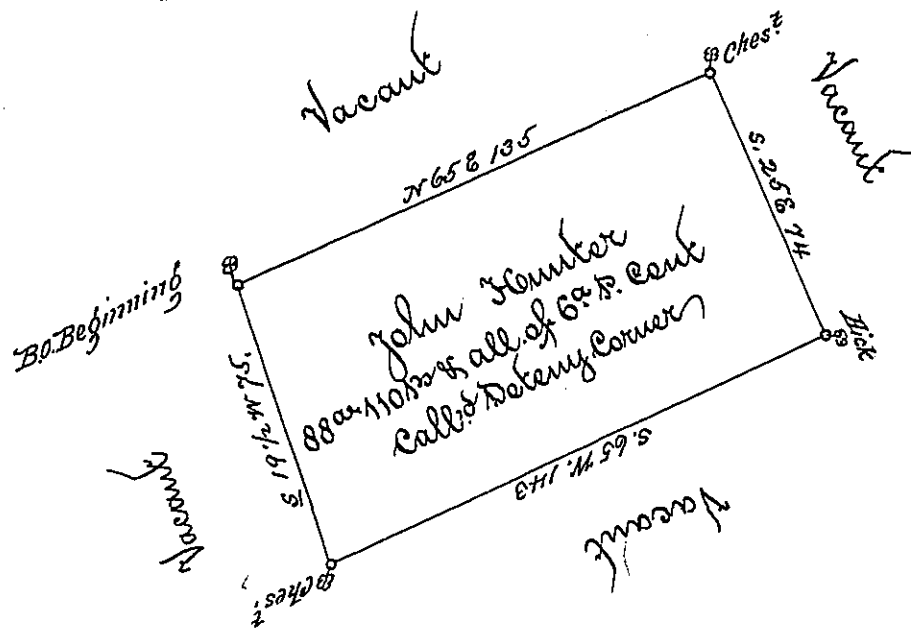 Ches.t
Vacant
Vacant
N 65 E 135
S. 25 E 74
B.O. Beginning
John Hunter
88 ar 110 ps & all. of 6 a P. Cent
Call'd Corner
Hick
S 19 1/2 W 75.
S. 65 W. 143
Vacant
Vacant
Ches.t